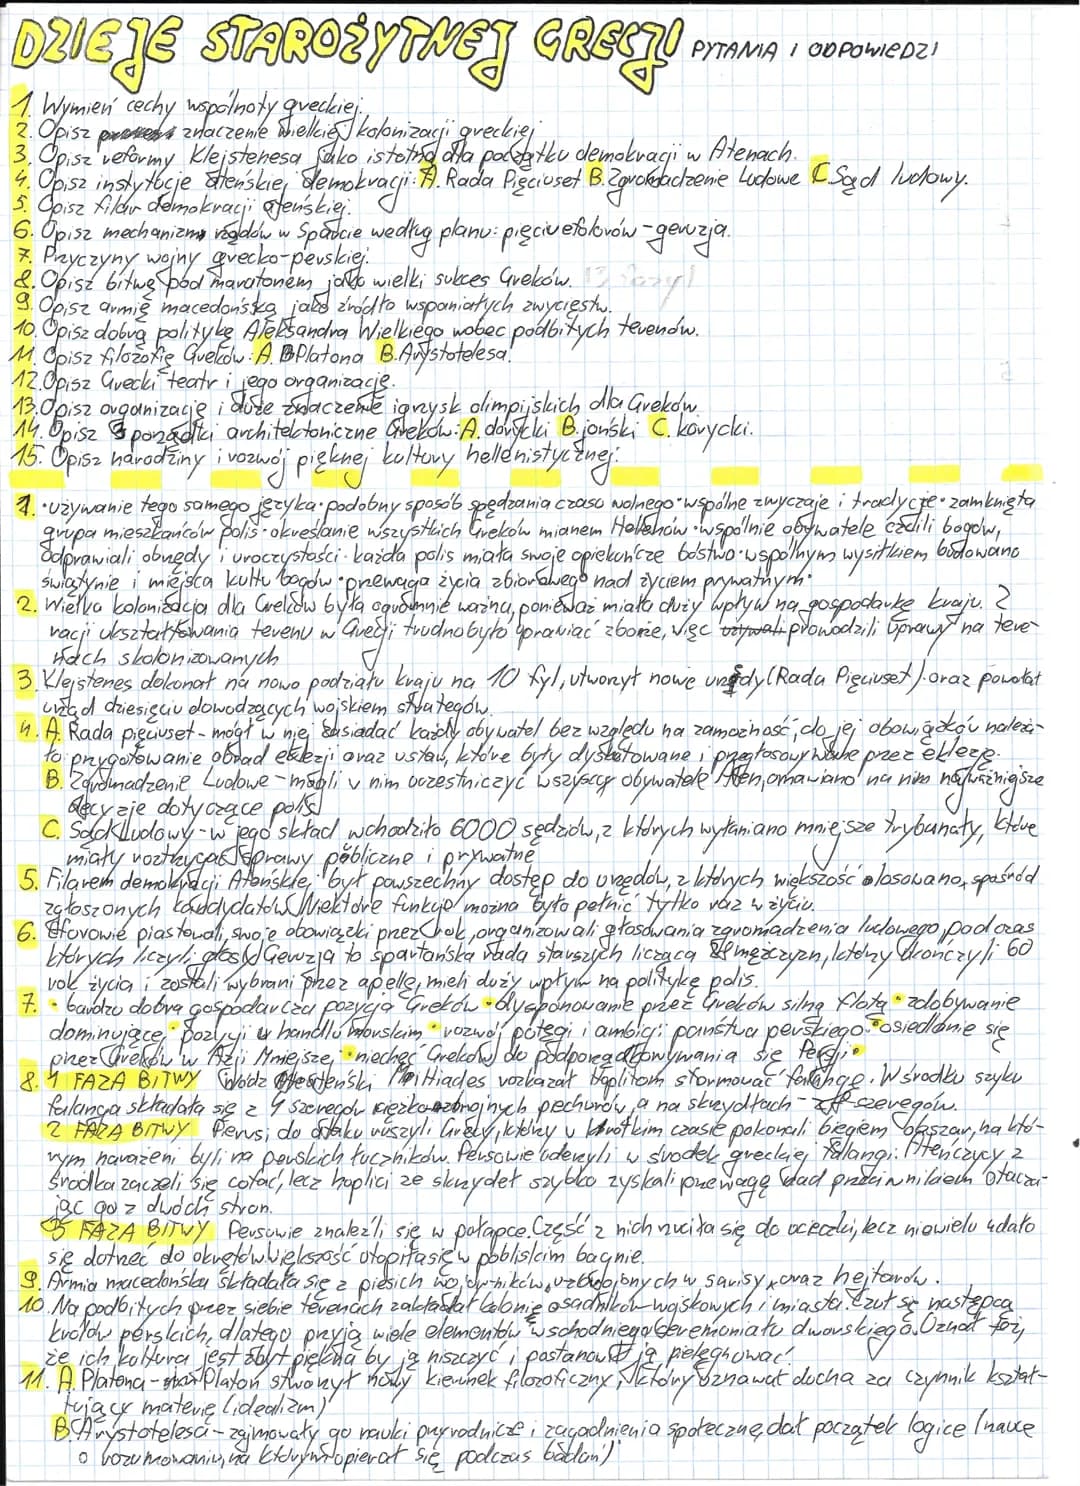 DZIEJE STAROŻYTNEJ GRECJI PYTANIA I ODPOWIEDZI
1. Wymień cechy wspólnoty greckiej.
2. Opisz znaczenie wielkiej kolonizacji greckiej
3. Opisz reformy Klejstenesa jako istotną dla początku demokracji w Atenach.
4. Opisz instytucje ateńskiej demokracji: A. Rada Pięciuset B. Zgromadzenie Ludowe C. Sąd ludowy.
5. Opisz filar demokracji ateńskiej.
6. Opisz mechanizm rządów w Sparcie według planu: pięciu eforów - geruzja.
7. Przyczyny wojny grecko-perskiej.
8. Opisz bitwę pod maratonem jako wielki sukces Greków.
9. Opisz armię macedońską jako źródło wspaniałych zwycięstw.
10. Opisz dobrą politykę Aleksandra Wielkiego wobec podbitych terenów.
11. Opisz filozofię Greków: A. Platona B. Arystotelesa.
12. Opisz Grecki teatr i jego organizację.
13. Opisz organizację i duże znaczenie igrzysk olimpijskich dla Greków.
14. Opisz 3 porządki architektoniczne Greków: A. dorycki B. joński C. korycki.
15. Opisz narodziny i rozwój pięknej kultury hellenistycznej.
1. • używanie tego samego języka • podobny sposób spędzania czasu wolnego • wspólne zwyczaje i tradycje • zamknięta
grupa mieszkańców polis • określanie wszystkich Greków mianem Hellenów • wspólnie obywatele czcili bogów,
odprawiali obrzędy i uroczystości • każda polis miała swoje opiekuńcze bóstwo • wspólnym wysiłkiem budowano
świątynie i miejsca kultu bogów • przewaga życia zbiorowego nad życiem prywatnym •
2. Wielka kolonizacja dla Greków była ogromnie ważna, ponieważ miała duży wpływ na gospodarkę kraju. Z
racji ukształtowania terenu w Grecji trudno było uprawiać zboże, więc prowadzili uprawy na tere-
nach skolonizowanych
3. Klejstenes dokonał na nowo podziału kraju na 10 fyl, utworzył nowe urzędy (Rada Pięciuset) oraz powołał
urząd dziesięciu dowodzących wojskiem strategów.
4. A. Rada pięciuset - mógł w niej zasiadać każdy obywatel bez względu na zamożność, do jej obowiązków należa-
ło przygotowanie obrad eklezji oraz ustaw, które były dyskutowane i przegłosowywane przez eklezję.
B. Zgromadzenie Ludowe - mogli w nim uczestniczyć wszyscy obywatele Aten, omawiano na nim najważniejsze
decyzje dotyczące polis
C. Sąd Ludowy - w jego skład wchodziło 6000 sędziów, z których wyłaniano mniejsze trybunały, które
miały roztrzygać sprawy publiczne i prywatne
5. Filarem demokracji Ateńskiej był powszechny dostęp do urzędów, z których większość losowano spośród
zgłoszonych kandydatów. Niektóre funkcje można było pełnić tylko raz w życiu.
6. Eforowie piastowali swoje obowiązki przez rok, organizowali głosowania zgromadzenia ludowego, podczas
których liczyli głosy. Geruzja to spartańska rada starszych licząca 28 mężczyzn, którzy ukończyli 60
rok życia i zostali wybrani przez apellę, mieli duży wpływ na politykę polis.
7. • bardzo dobra gospodarcza pozycja Greków • dysponowanie przez Greków silną flotą • zdobywanie
dominującej pozycji w handlu morskim • rozwój potęgi i ambicji państwa perskiego • osiedlanie się
przez Greków w Azji Mniejszej • niechęć Greków do podporządkowywania się Persji •
8. 1 FAZA BITWY Wódz Ateński Miltiades rozkazał hoplitom sformować falangę. W środku szyku
falanga składała się z 4 szeregów ciężkozbrojnych piechurów, a na skrzydłach - szeregów.
2 FAZA BITWY Pierwsi do ataku ruszyli Grecy, którzy w krótkim czasie pokonali biegiem obszar, na któ-
rym narażeni byli na perskich łuczników. Persowie uderzyli w środek greckiej falangi. Ateńczycy z
środka zaczeli się cofać, lecz hoplici ze skrzydeł szybko zyskali przewagę nad przeciwnikiem otacza-
jąc go z dwóch stron.
3 FAZA BITWY Persowie znaleźli się w pułapce. Część z nich rzuciła się do ucieczki, lecz niewielu udało
się dotrzeć do okrętów. Większość utopiła się w pobliskim bagnie.
9. Armia macedońska składała się z pieszych wojowników, uzbrojonych w sarisy, oraz hejtarów.
10. Na podbitych przez siebie terenach zakładał kolonie osadników wojskowych i miasta. Czuł się następcą
królów perskich, dlatego przyją wiele elementów wschodniego ceremoniału dworskiego. Uznał też,
że ich kultura jest zbyt piękna by ją niszczyć i postanowił ją pielęgnować.
11. A. Platona - Platon stworzył nowy kierunek filozoficzny, który uznawał ducha za czynnik kształ-
tujący materię (idealizm)
B. Arystotelesa - zajmowały go nauki przyrodnicze i zagadnienia społeczne, dał początek logice (nauce
o rozumowaniu, na którym opierał się podczas badań)